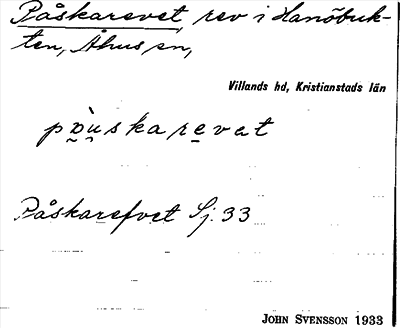 Påskarevet, rev i Hanöbuk-
ten, Åhus sn,
Villands hd, Kristianstads län
pöu̯skarevat
Påskarefvet Sj. 33
JOHN SVENSSON 1933